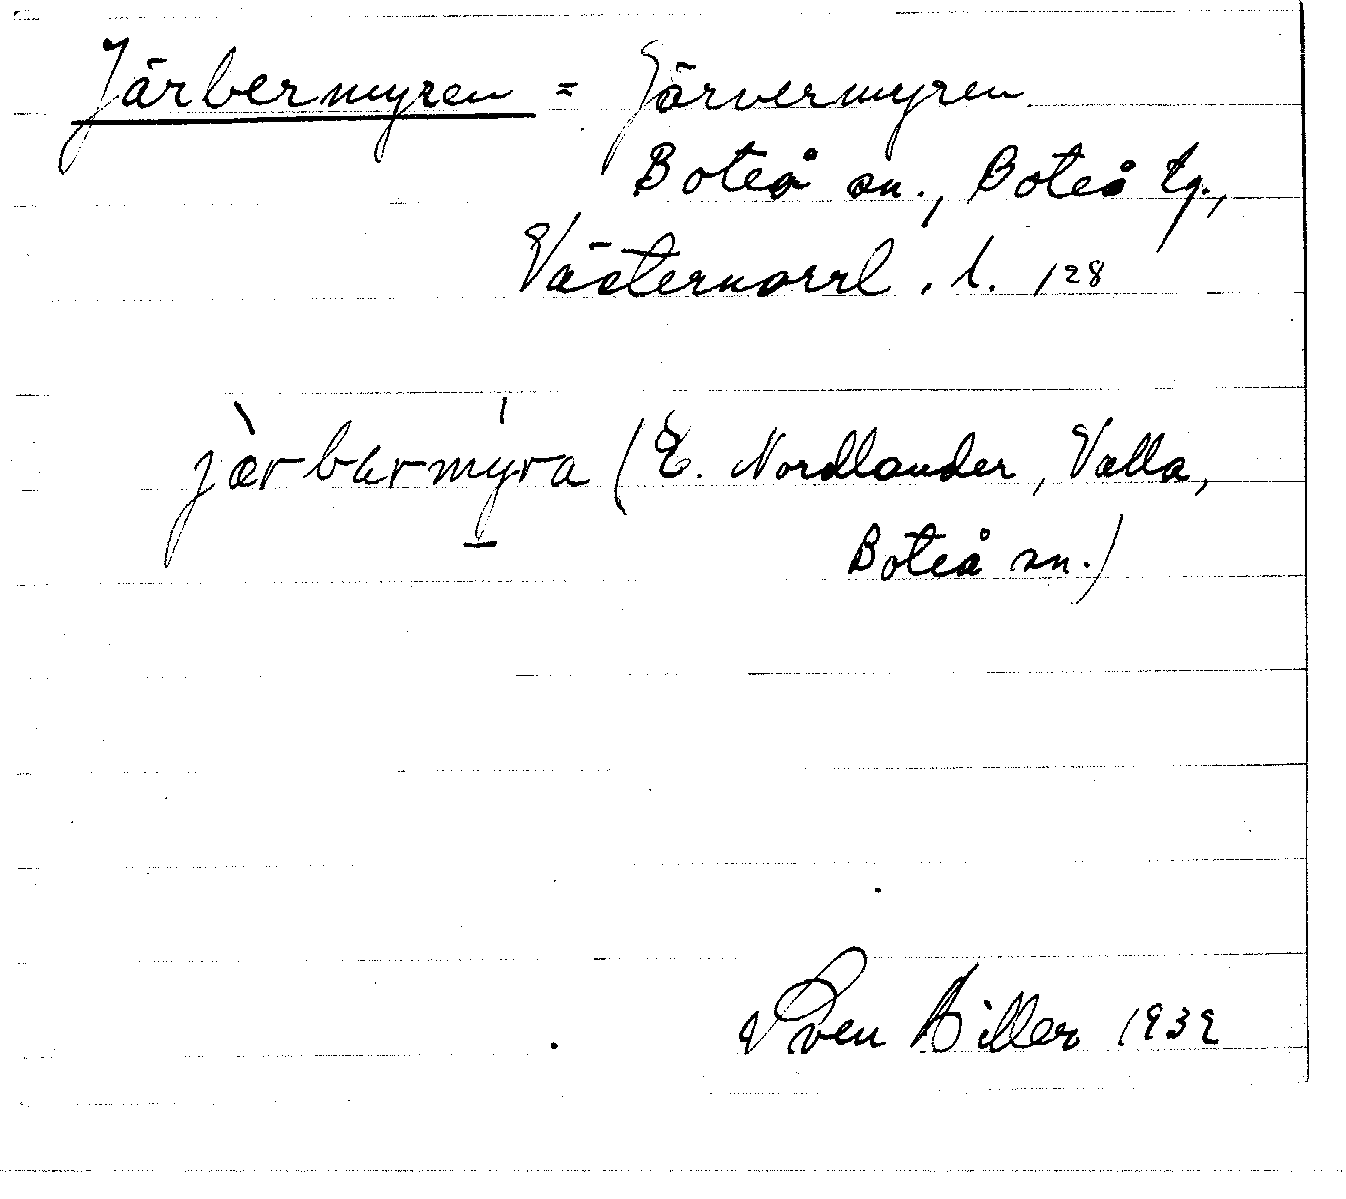 Järbermyren = Järvermyren
Boteå sn., Boteå tg.,
Västernorrl. l. 128
jàrbarmýra (E. Nordlander, Valla,
Boteå sn.)
Sven Hiller 1939